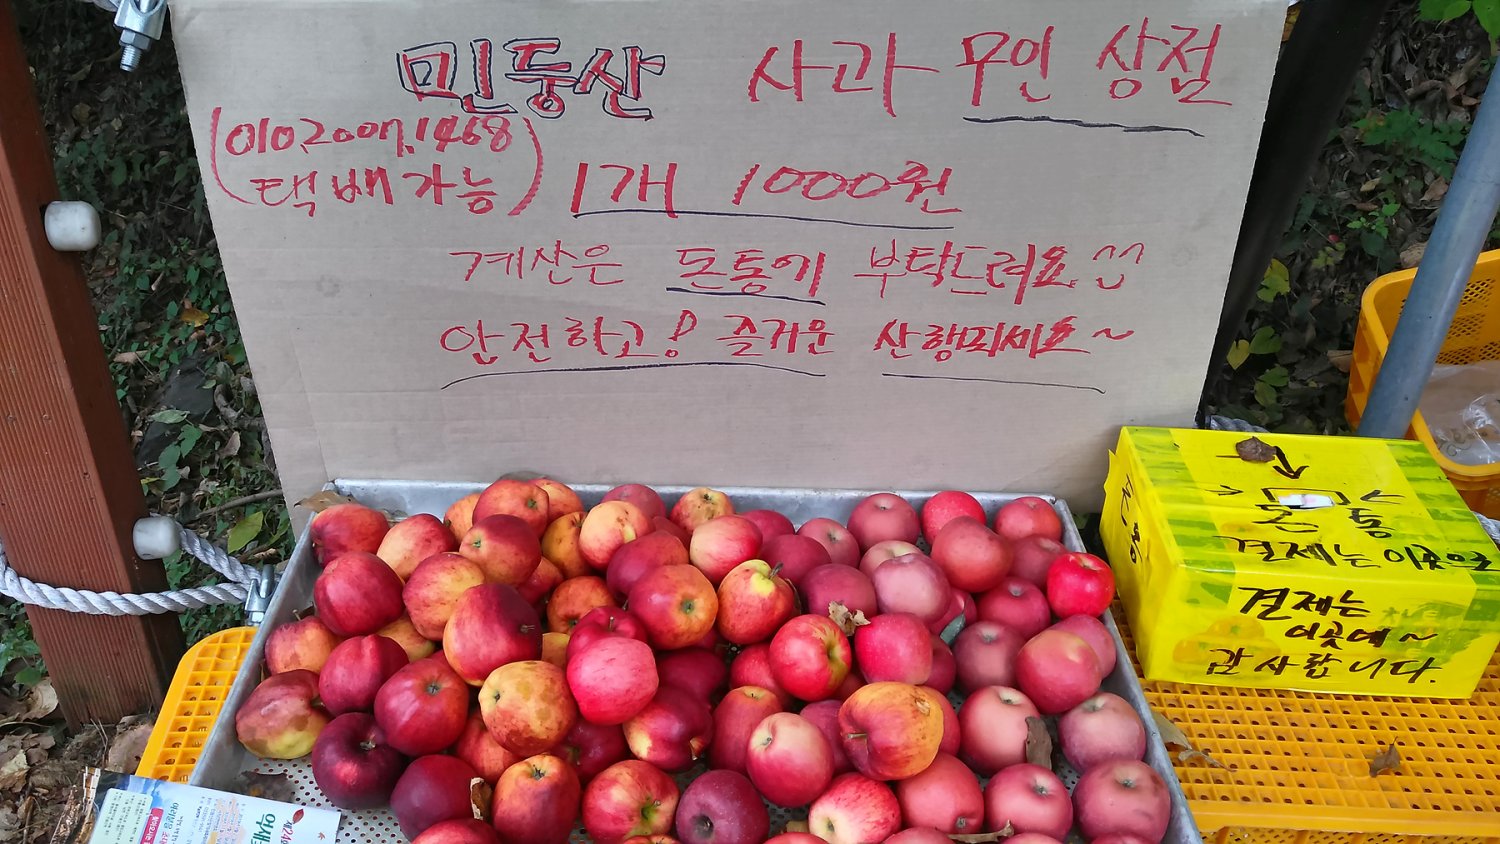 민둥산 사과 무인 상점
(010.2007.1468
택배가능)
1개 1000원
계산은 돈통에 부탁드려요 ^^
안전하고! 즐거운 산행되세요~
돈통
결제는 이곳으로
결제는
이곳에~
감사합니다.
제24